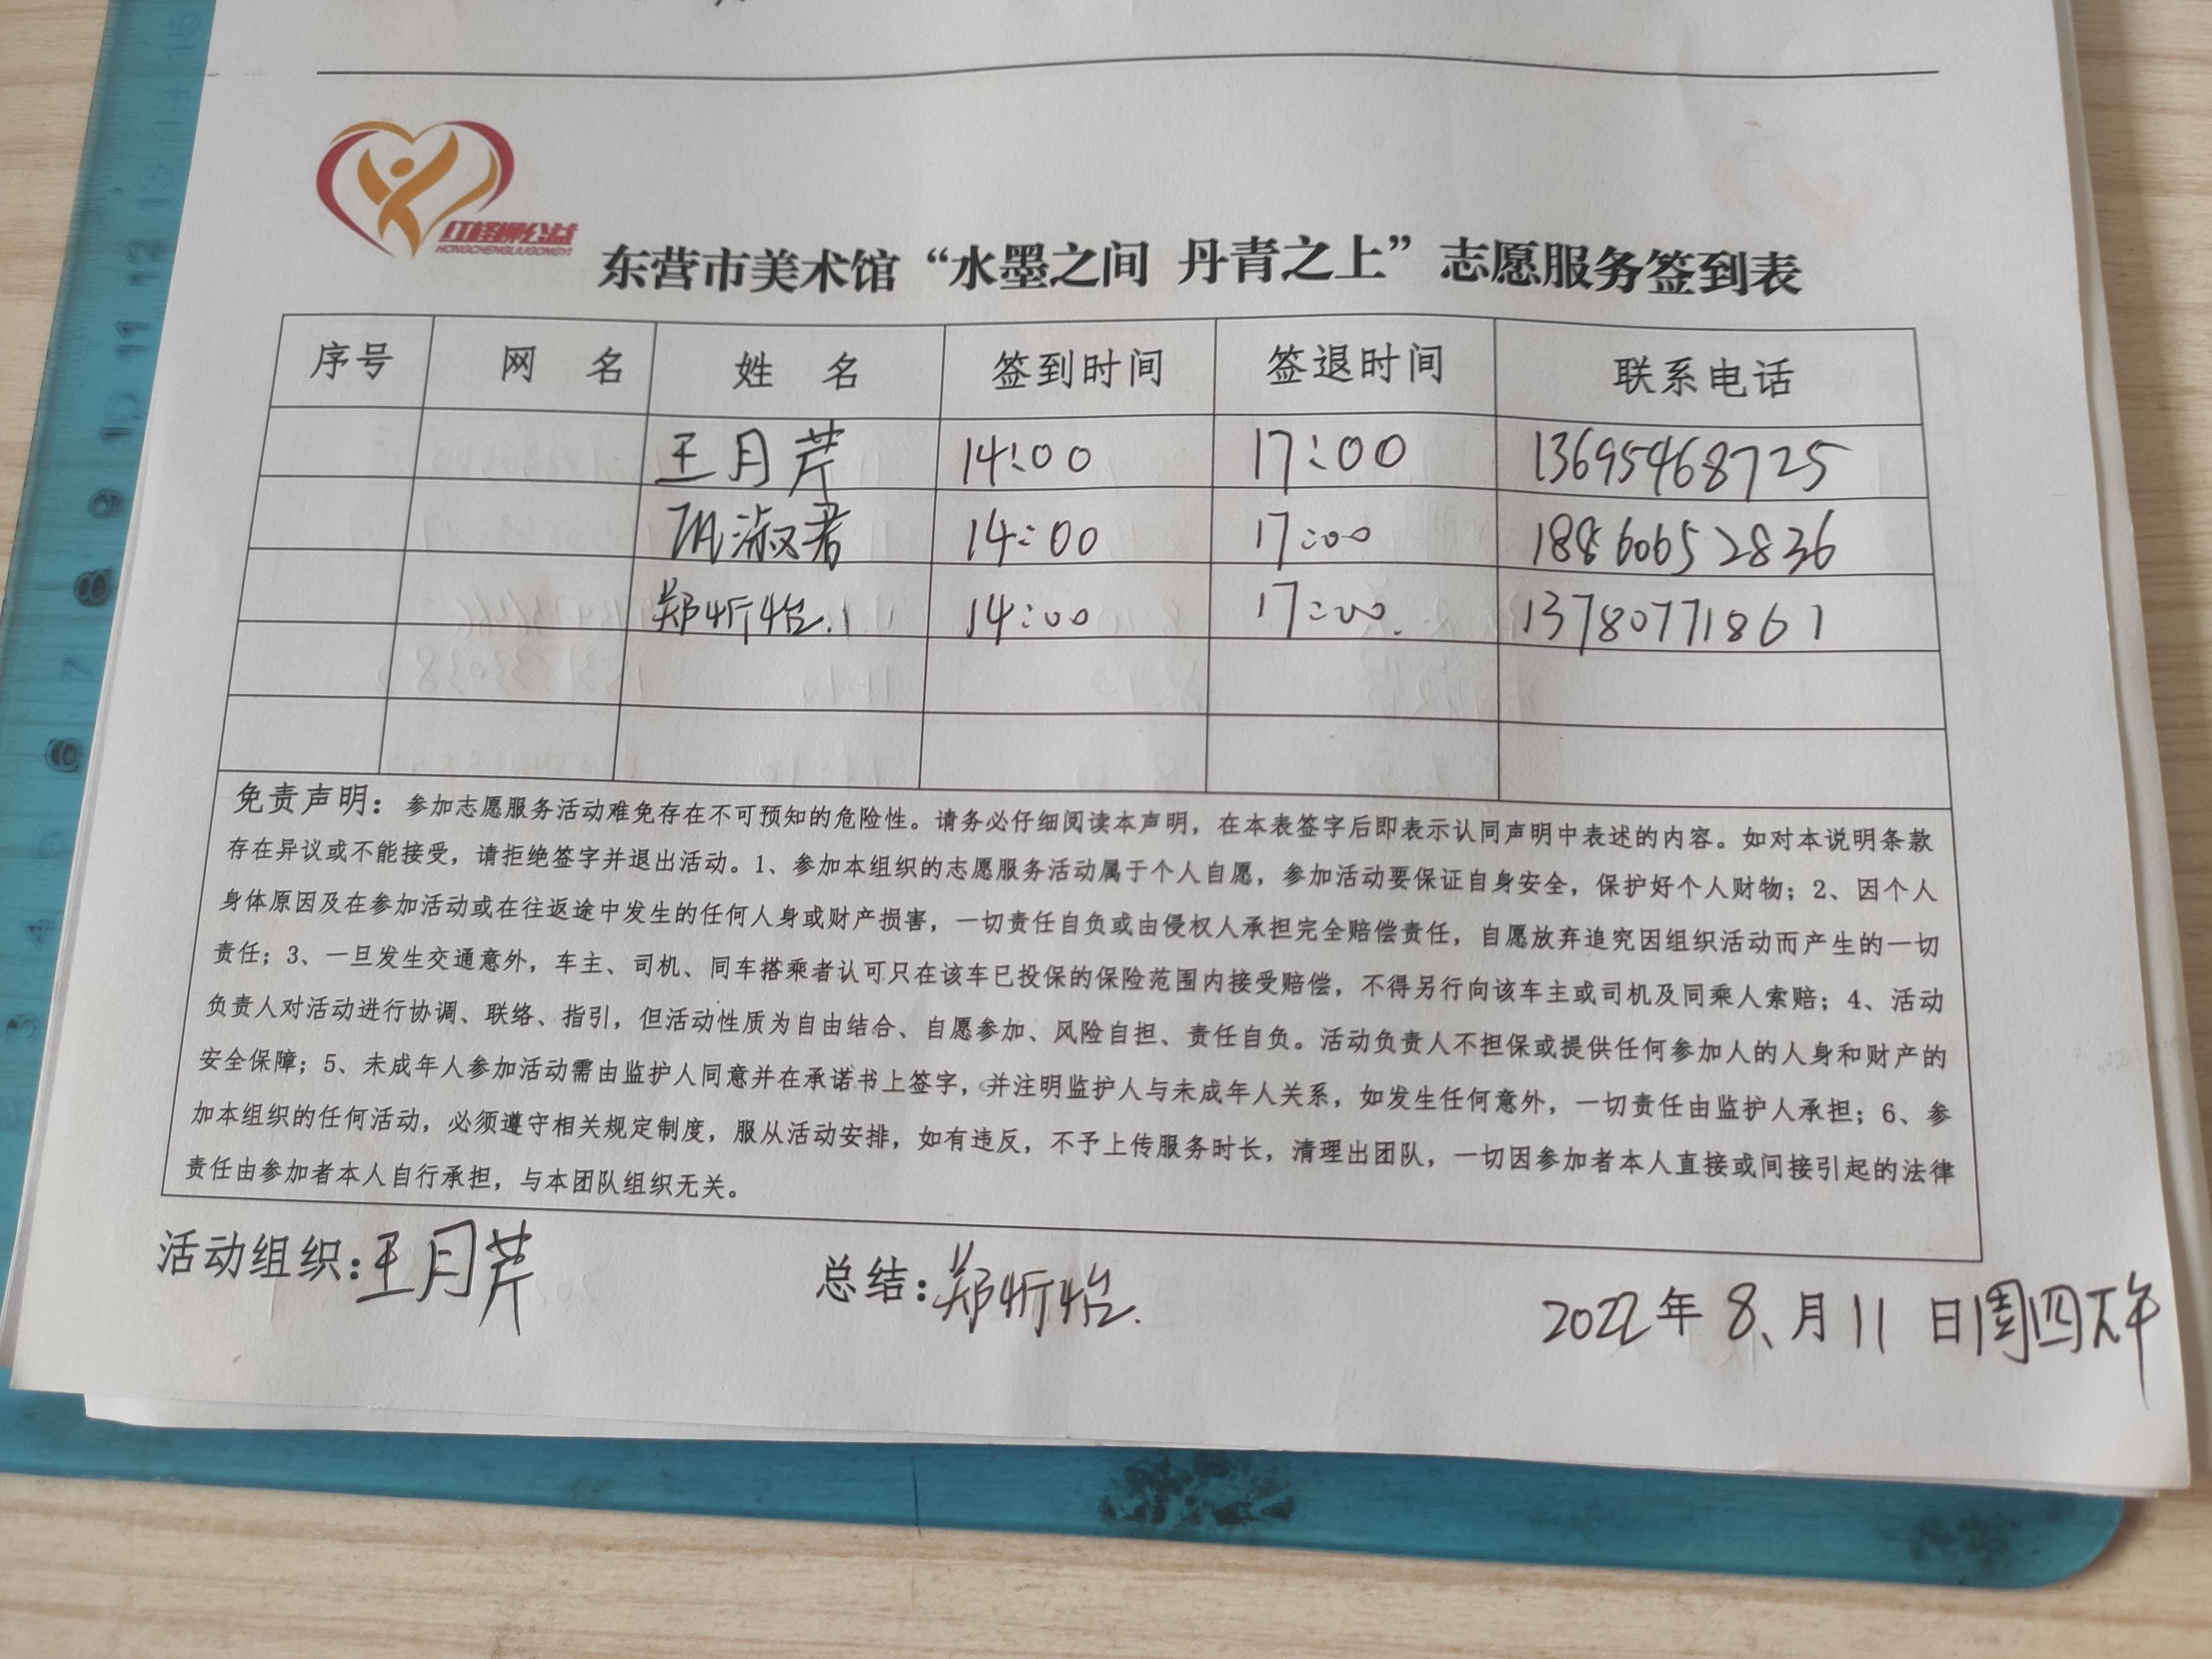 红柽柳公益
HONGCHENGLIUGONGYI
东营市美术馆“水墨之间 丹青之上”志愿服务签到表
序号 网 名 姓 名 签到时间 签退时间 联系电话
王月芹 14:00 17:00 13695468725
淑君 14:00 17:00 18860652836
郑昕怡. 14:00 17:00. 13780771861
免责声明：参加志愿服务活动难免存在不可预知的危险性。请务必仔细阅读本声明，在本表签字后即表示认同声明中表述的内容。如对本说明条款
存在异议或不能接受，请拒绝签字并退出活动。1、参加本组织的志愿服务活动属于个人自愿，参加活动要保证自身安全，保护好个人财物；2、因个人
身体原因及在参加活动或在往返途中发生的任何人身或财产损害，一切责任自负或由侵权人承担完全赔偿责任，自愿放弃追究因组织活动而产生的一切
责任；3、一旦发生交通意外，车主、司机、同车搭乘者认可只在该车已投保的保险范围内接受赔偿，不得另行向该车主或司机及同乘人索赔；4、活动
负责人对活动进行协调、联络、指引，但活动性质为自由结合、自愿参加、风险自担、责任自负。活动负责人不担保或提供任何参加人的人身和财产的
安全保障；5、未成年人参加活动需由监护人同意并在承诺书上签字，并注明监护人与未成年人关系，如发生任何意外，一切责任由监护人承担；6、参
加本组织的任何活动，必须遵守相关规定制度，服从活动安排，如有违反，不予上传服务时长，清理出团队，一切因参加者本人直接或间接引起的法律
责任由参加者本人自行承担，与本团队组织无关。
活动组织：王月芹 总结：郑昕怡. 2022年 8、月 11 日周四下午